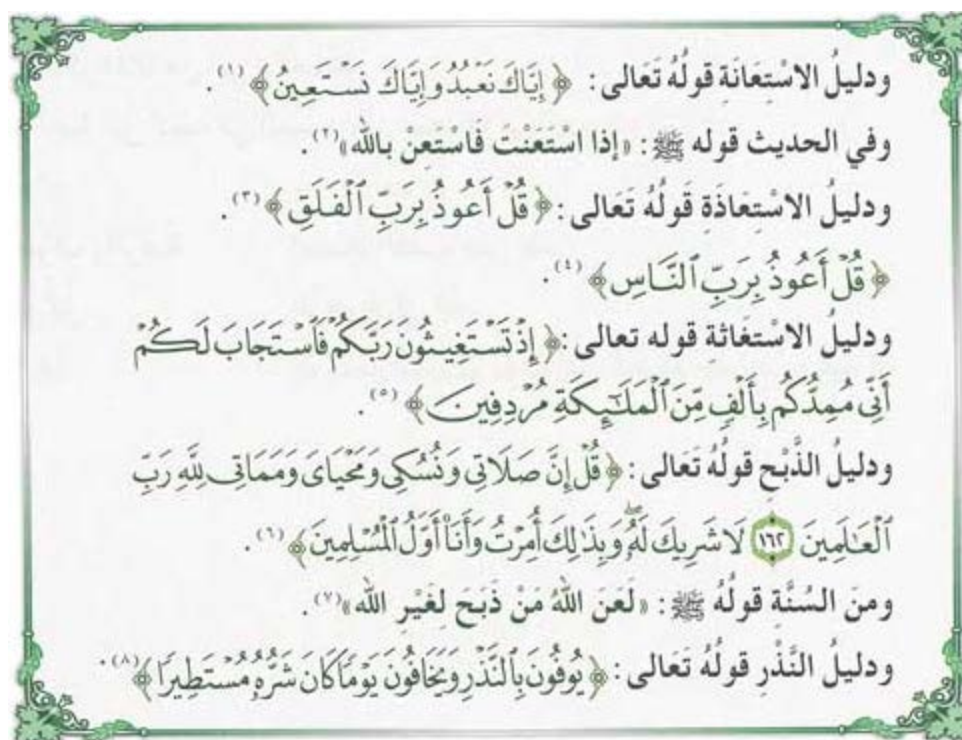 ودليلُ الاسْتِعَانَةِ قولُهُ تَعَالى: ﴿ إِيَّاكَ نَعْبُدُ وَإِيَّاكَ نَسْتَعِينُ ﴾ (١).
وفي الحديث قوله ﷺ: «إذا اسْتَعَنْتَ فَاسْتَعِنْ بالله» (٢).
ودليلُ الاسْتِعَاذَةِ قَولُهُ تَعَالى: ﴿ قُلْ أَعُوذُ بِرَبِّ ٱلْفَلَقِ ﴾ (٣).
﴿ قُلْ أَعُوذُ بِرَبِّ ٱلنَّاسِ ﴾ (٤).
ودليلُ الاسْتغَاثةِ قوله تعالى: ﴿ إِذْ تَسْتَغِيثُونَ رَبَّكُمْ فَٱسْتَجَابَ لَكُمْ
أَنِّي مُمِدُّكُم بِأَلْفٍ مِّنَ ٱلْمَلَٰٓئِكَةِ مُرْدِفِينَ ﴾ (٥).
ودليلُ الذَّبْحِ قولُهُ تَعَالى: ﴿ قُلْ إِنَّ صَلَاتِي وَنُسُكِي وَمَحْيَايَ وَمَمَاتِي لِلَّهِ رَبِّ
ٱلْعَٰلَمِينَ ١٦٢ لَا شَرِيكَ لَهُۥ وَبِذَٰلِكَ أُمِرْتُ وَأَنَا۠ أَوَّلُ ٱلْمُسْلِمِينَ ﴾ (٦).
ومنَ السُنَّةِ قولُهُ ﷺ: «لَعَنَ اللهُ مَنْ ذَبَحَ لِغَيْرِ الله» (٧).
ودليلُ النَّذْرِ قولُهُ تَعَالى: ﴿ يُوفُونَ بِٱلنَّذْرِ وَيَخَافُونَ يَوْمًا كَانَ شَرُّهُۥ مُسْتَطِيرًا ﴾ (٨).